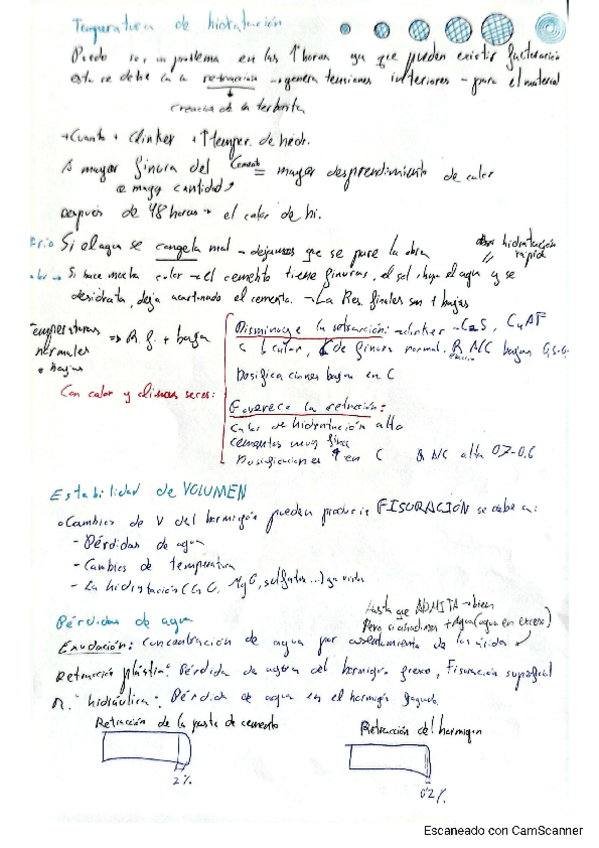 Temperatura de hidratación
Puede ser un problema en las 1ª horas ya que pueden existir fracturación
esta se debe a la retracción → genera tensiones interiores - para el material
Creación de la
+ Cuanto + clinker + ↑ temper. de hidr.
A mayor finura del cemento = mayor desprendimiento de calor
o mayor cantidad
Después de 48 horas → el calor de hi.
Frio Si el agua se congela mal - dejamos que se pare la obra
hidratación rápida
Si hace mucho calor → el cemento tiene finuras, el sol chupa el agua y se
desidrata, deja acartonado el cemento. → La Res. finales son + bajas
Temperaturas normales o bajas ⇒ R.f. + baja
Con calor y climas secos:
Disminuye la retracción: clinker - C2S, C4AF
↓ calor, de finura normal. R A/C bajas
Dosificaciones bajas en C
Favorece la retracción:
Calor de hidratación alto
Cementos muy finos
Dosificaciones ↑ en C R A/C alta 0.7-0.6
Estabilidad de VOLUMEN
Cambios de V del hormigón pueden producir FISURACIÓN se debe a:
- Pérdidas de agua
- Cambios de temperatura
- La hidratación (CaO, MgO, sulfatos...)
Hasta que ADMITA → bien
Pérdidas de agua
Pero si añadimos + Agua (agua en exceso)
Exudación: Concentración de agua por asentamiento de los áridos
Retracción plástica: Pérdida de agua del hormigón fresco, Fisuración superficial
R. "hidráulica": Pérdida de agua en el hormigón fraguado.
Retracción de la pasta de cemento
Retracción del hormigón
2%
0'2%
Escaneado con CamScanner